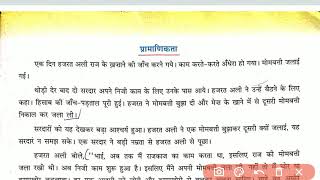 प्रामाणिकता
एक दिन हजरत अली राज के ख़जाने की जाँच करने गये। काम करते-करते अँधेरा हो गया। मोमबत्ती जलाई
गई।
थोड़ी देर बाद दो सरदार अपने निजी काम के लिए उनके पास आये। हजरत अली ने उन्हें बैठने के लिए
कहा। हिसाब की जाँच-पड़ताल पूरी हुई। हजरत ने मोमबत्ती बुझा दी और मेज के खाने में से दूसरी मोमबत्ती
निकाल कर जला ली।
सरदारों को यह देखकर बड़ा आश्चर्य हुआ। हजरत अली ने एक मोमबत्ती बुझाकर दूसरी क्यों जलाई, यह
सरदार न समझ सके। एक ने बड़ी नम्रता से हजरत अली से पूछा।
हजरत अली बोले, "भाई, अब तक मैं राजकाज का काम करता था, इसलिए राज की मोमबत्ती
जला रखी थी। अब निजी काम शुरू हुआ है। इसलिए मैंने अपनी मोमबत्ती